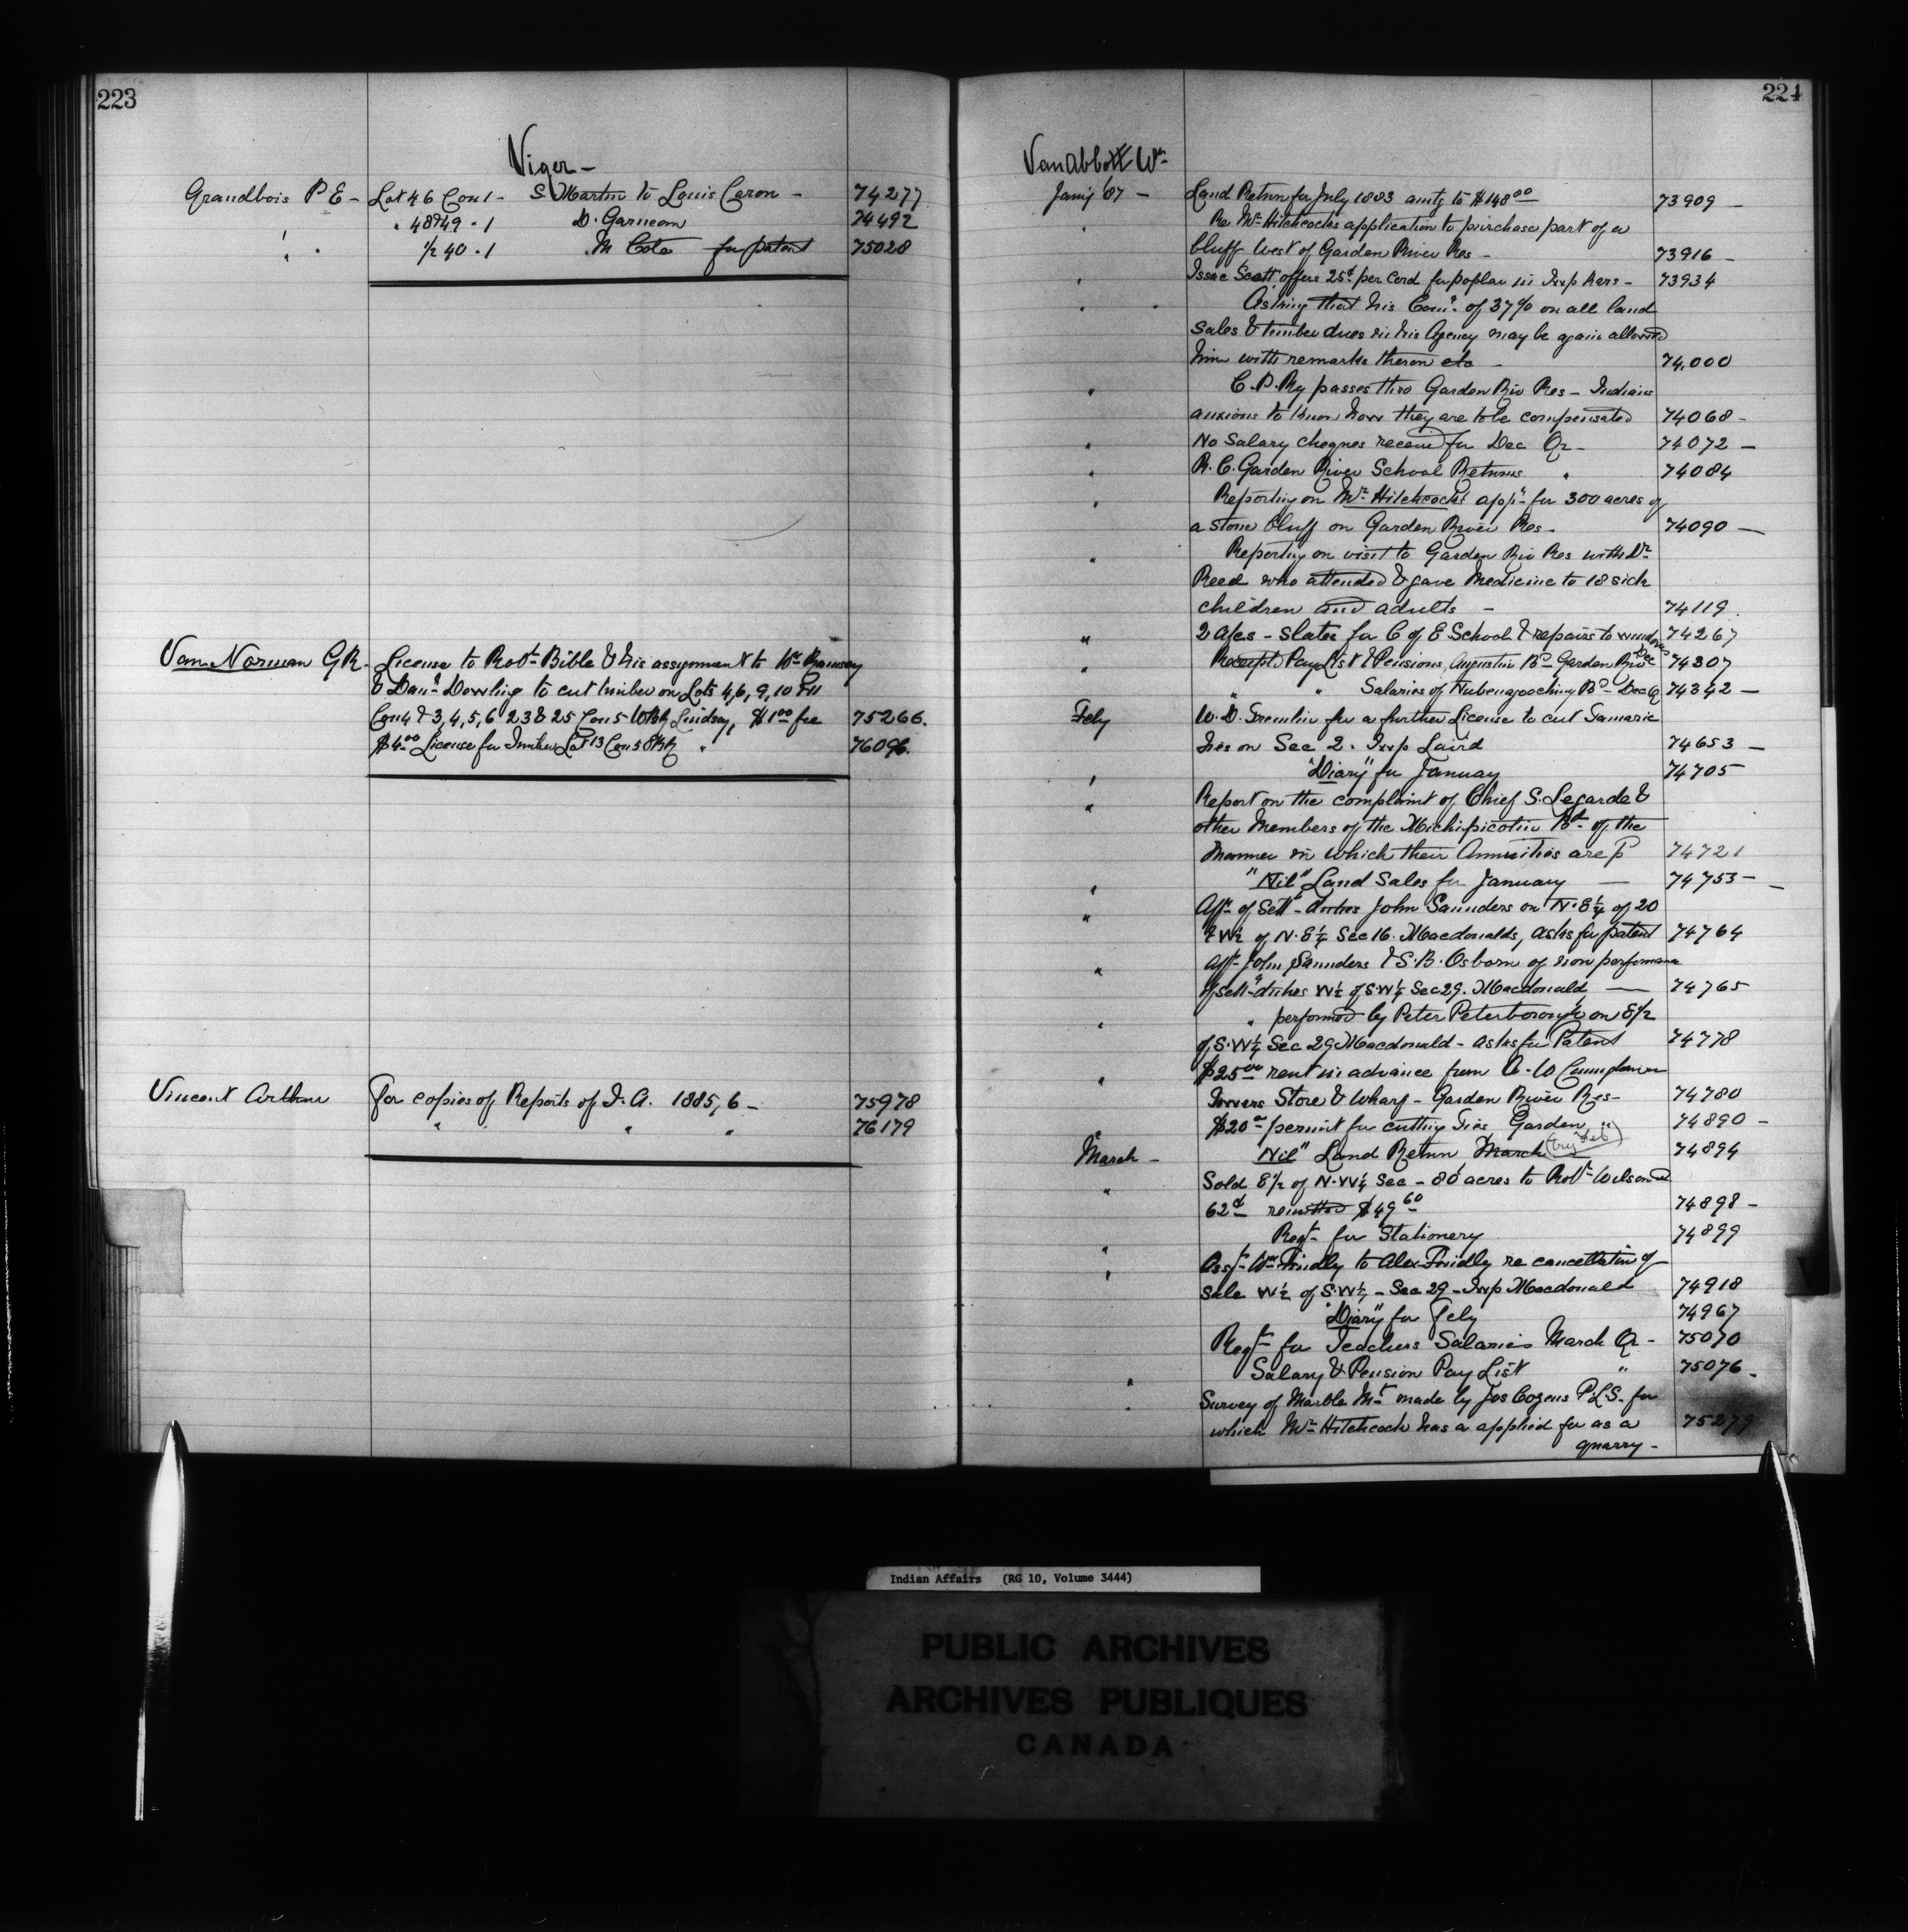 223
Viger -
Grandbois P E - Lot 46 Con 1 - S Martin to Louis Caron - 74277
" 48 & 49 " 1 D. Garneau 74492
" " 1/2 40 " 1 M Cote for patent 75028
Van Norman G R. License to Robt Bible & his assignment to Wm Ramsay
& Danl Dowling to cut timber on Lots 4, 6, 9, 10 & 11
Con 4 & 3, 4, 5, 6 23 & 25 Con 5 W Bk Lindsay, $1.00 fee 75266.
$4.00 License for Timber Lot 13 Con 5 " 76096.
Vincent Arthur For copies of Reports of I. A. 1885, 6 - 75978
" " " 76179
224
Van Abbott Wm
Jany '87 - Land Return for July 1883 amtg to $148.00 73909 -
" Re Mr Hitchcocks application to purchase part of a
bluff West of Garden River Res - 73916 -
" Issac Scott offers 25c per Cord for poplar in Twp Kars - 73934
" " Asking that his Comn of 37% on all land
sales & timber dues in his Agency may be again allowed
him with remarks theron etc - 74,000
" C. P. Ry passes thro Garden Riv Res - Indians
anxious to know how they are to be compensated 74068 -
" No Salary cheques received for Dec Qr - 74072 -
" R. C. Garden River School Returns " 74084
" Reporting on Mr Hitchcocks appn for 300 acres of
a stone bluff on Garden River Res - 74090 -
" Reporting on visit to Garden Riv Res with Dr
Reed who attended & gave Medicine to 18 sick
children and adults - 74119
" 2 a/cs - Slates for C of E School & repairs to windows 74267
" Receipted Pay List & Pensions, Augustin Bd - Garden Riv Dec 74307
" " Salaries of Nubenagooching Bd - Dec Q 74342 -
Feby W. D. for a further License to cut Tamarac
ties on Sec 2. Twp Laird 74653 -
" "Diary" for January 74705
" Report on the complaint of Chief S. Legarde &
other Members of the Michipicotin Bd of the
Manner in which their Annuities are p 74721
" "Nil" Land Sales for January - 74753 -
" Afft of Sett duties John Saunders on N. E 1/4 of 20
& W 1/2 of N. E 1/4 Sec 16. Macdonalds, asks for patent 74764
" Afft John Saunders & S. B. Osborn of non performance
of sett duties W 1/2 of S. W 1/4 Sec 29. Macdonald - 74765
" " performed by Peter Peterborough on E 1/2
of S. W 1/4 Sec 29 Macdonald - asks for Patent 74778
" $25.00 rent in advance from
Store & Wharf - Garden River Res - 74780
$20 - permit for cutting Ties Garden " 74890 -
March - "Nil" Land Return March 74894
" Sold E 1/2 of N. W 1/4 Sec - 80 acres to Robt Wilson @
62c remitted $49.60 74898 -
" Reqn for Stationery 74899
" Asst Wm Findly to Alex Findly re cancellation of
sale W 1/2 of S. W 1/4 - Sec 29 - Twp Macdonald 74918
"Diary" for Feby 74967
Reqn for Teachers Salaries March Qr - 75070
" Salary & Pension Pay List " 75076 -
" Survey of Marble Mt made by Jos Cozens P. L. S. for
which Mr Hitchcock has a applied for as a 75279
quarry -
Indian Affairs (RG 10, Volume 3444)
PUBLIC ARCHIVES
ARCHIVES PUBLIQUES
CANADA